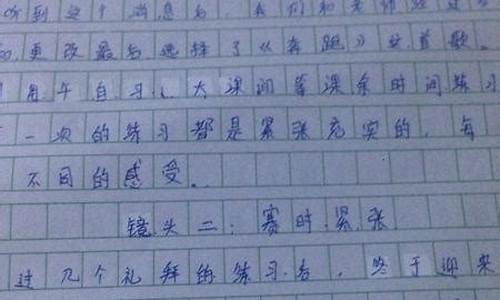 听到这个消息后，我们和老师经过
更改最后选择了《奔跑》这首歌。
用午自习、大课间等课余时间练习
一次的练习都是紧张充实的，每
不同的感受。
镜头二：赛时 紧张
过几个礼拜的练习后，终于迎来